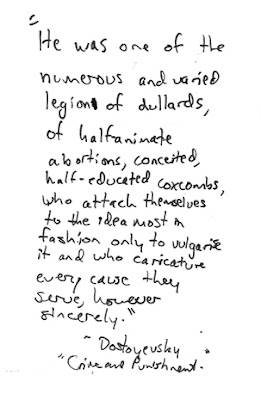 "He was one of the
numerous and varied
legion of dullards,
of halfanimate
abortions, conceited,
half-educated coxcombs,
who attach themselves
to the idea most in
fashion only to vulgarise
it and who caricature
every cause they
serve, however
sincerely."
~ Dostoyevsky
"Crime and Punishment."